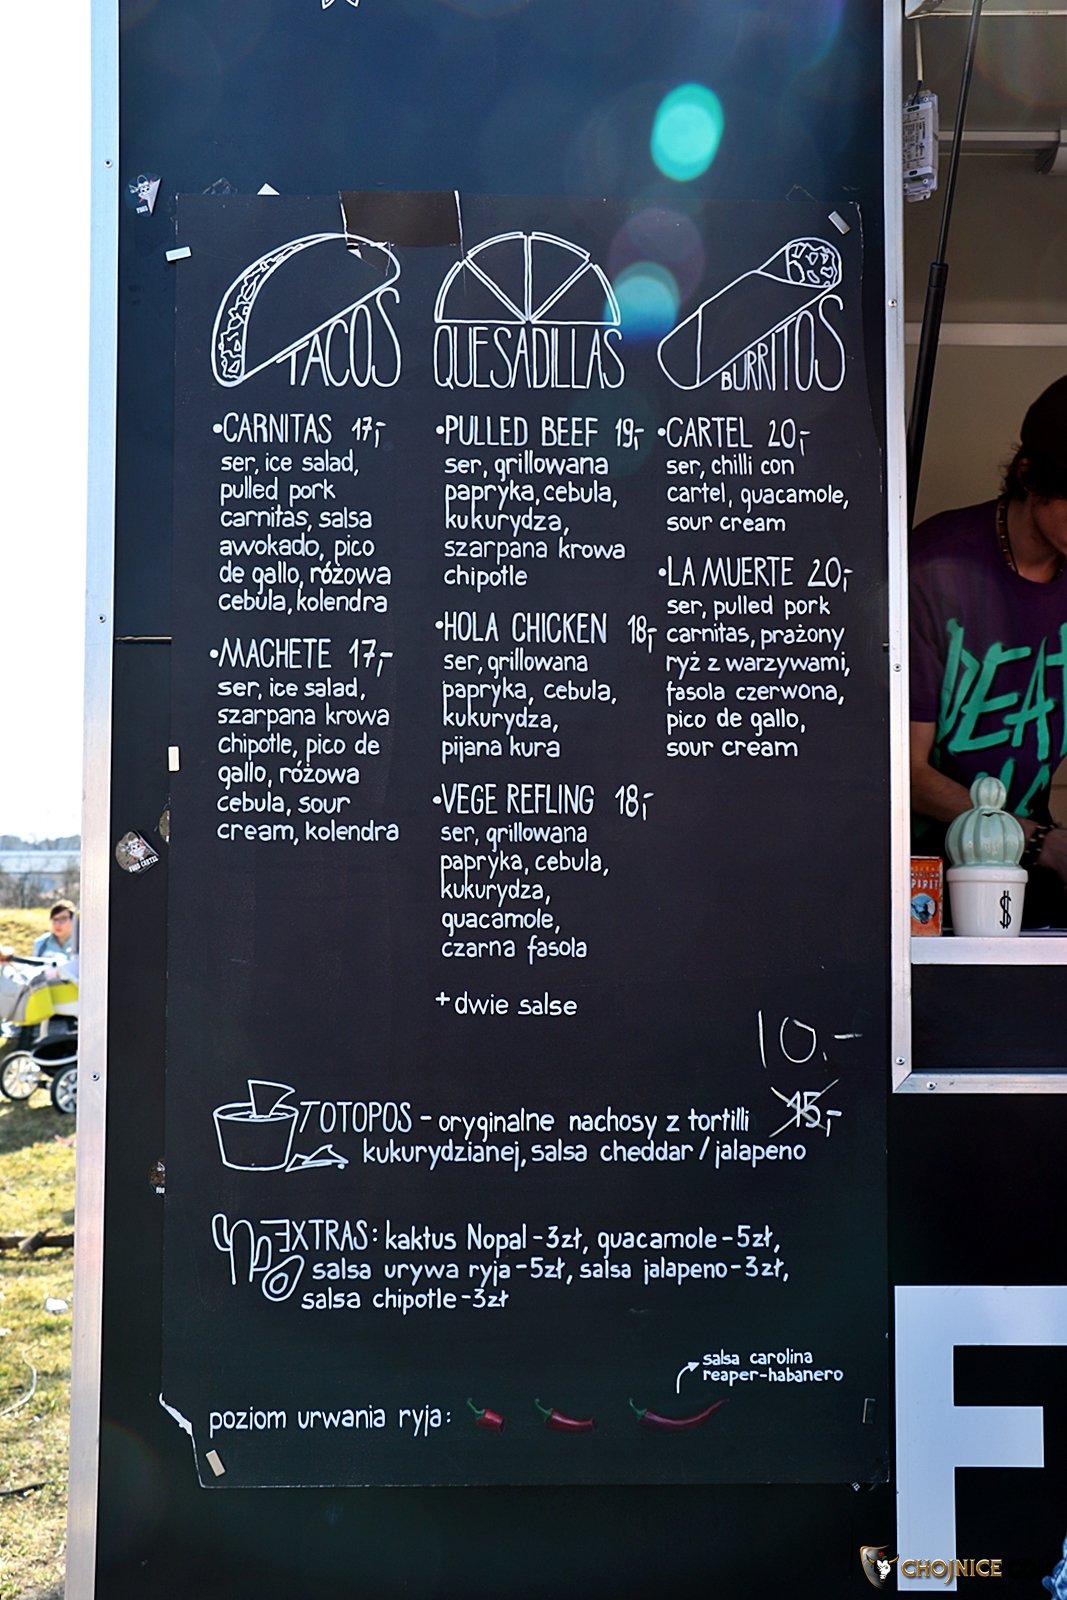 TACOS
•CARNITAS 17,-
ser, ice salad,
pulled pork
carnitas, salsa
awokado, pico
de gallo, różowa
cebula, kolendra
•MACHETE 17,-
ser, ice salad,
szarpana krowa
chipotle, pico de
gallo, różowa
cebula, sour
cream, kolendra
QUESADILLAS
•PULLED BEEF 19,-
ser, grillowana
papryka, cebula,
kukurydza,
szarpana krowa
chipotle
•HOLA CHICKEN 18,-
ser, grillowana
papryka, cebula,
kukurydza,
pijana kura
•VEGE REFLING 18,-
ser, grillowana
papryka, cebula,
kukurydza,
guacamole,
czarna fasola
+dwie salse
BURRITOS
•CARTEL 20,-
ser, chilli con
cartel, guacamole,
sour cream
•LA MUERTE 20,-
ser, pulled pork
carnitas, prażony
ryż z warzywami,
fasola czerwona,
pico de gallo,
sour cream
10.-
TOTOPOS - oryginalne nachosy z tortilli 15,-
kukurydzianej, salsa cheddar / jalapeno
EXTRAS: kaktus Nopal - 3zł, guacamole - 5zł,
salsa urywa ryja - 5zł, salsa jalapeno - 3zł,
salsa chipotle - 3zł
salsa carolina
reaper-habanero
poziom urwania ryja:
DEA
$
F
CHOJNICE